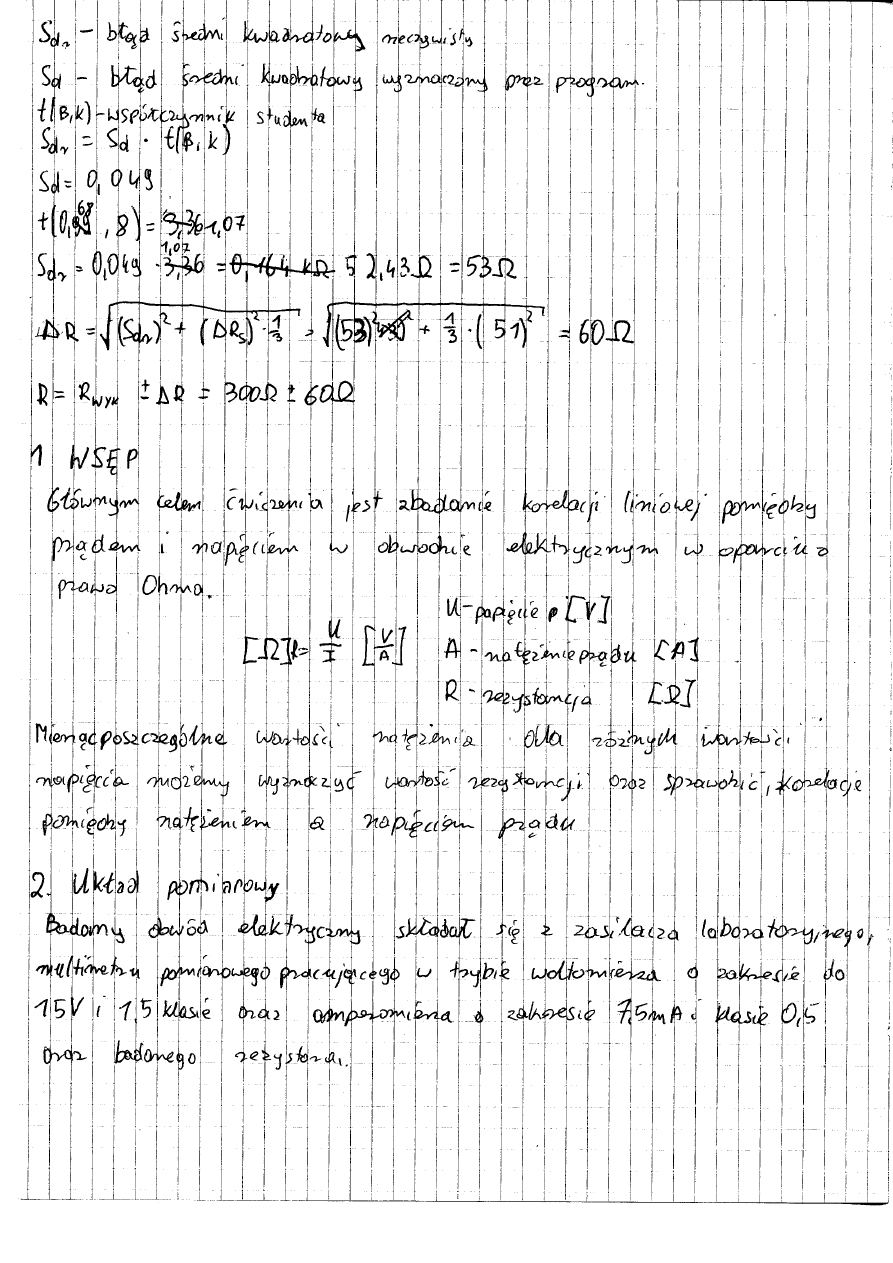 Sdr – błąd średni kwadratowy rzeczywisty
Sd – błąd średni kwadratowy wyznaczony przez program.
t(β,k) – współczynnik studenta
Sdr = Sd · t(β,k)
Sd = 0,049
t(0,68, 8) = 3,36 1,07
Sdr = 0,049 · 3,36 1,07 = 0,164 kΩ 52,43Ω = 53Ω
ΔR = √(Sdr)² + (ΔRs)² · 1/3 = √(53)² + 1/3 · (51)² = 60Ω
R = RWYK ± ΔR = 300Ω ± 60Ω
1 WSĘP
Głównym celem ćwiczenia jest zbadanie korelacji liniowej pomiędzy
prądem i napięciem w obwodzie elektrycznym w oparciu o
prawo Ohma.
U – napięcie [V]
[Ω] R = U/I [V/A]
A – natężenie prądu [A]
R – rezystancja [Ω]
Mierząc poszczególne wartości natężenia dla różnych wartości
napięcia możemy wyznaczyć wartość rezystancji oraz sprawdzić, korelacje
pomiędzy natężeniem a napięciem prądu
2. Układ pomiarowy
Badany obwód elektryczny składał się z zasilacza laboratoryjnego,
multimetru pomiarowego pracującego w trybie woltomierza o zakresie do
15V i 1,5 klasie oraz amperomierza o zakresie 7,5mA i klasie 0,5
oraz badanego rezystora.